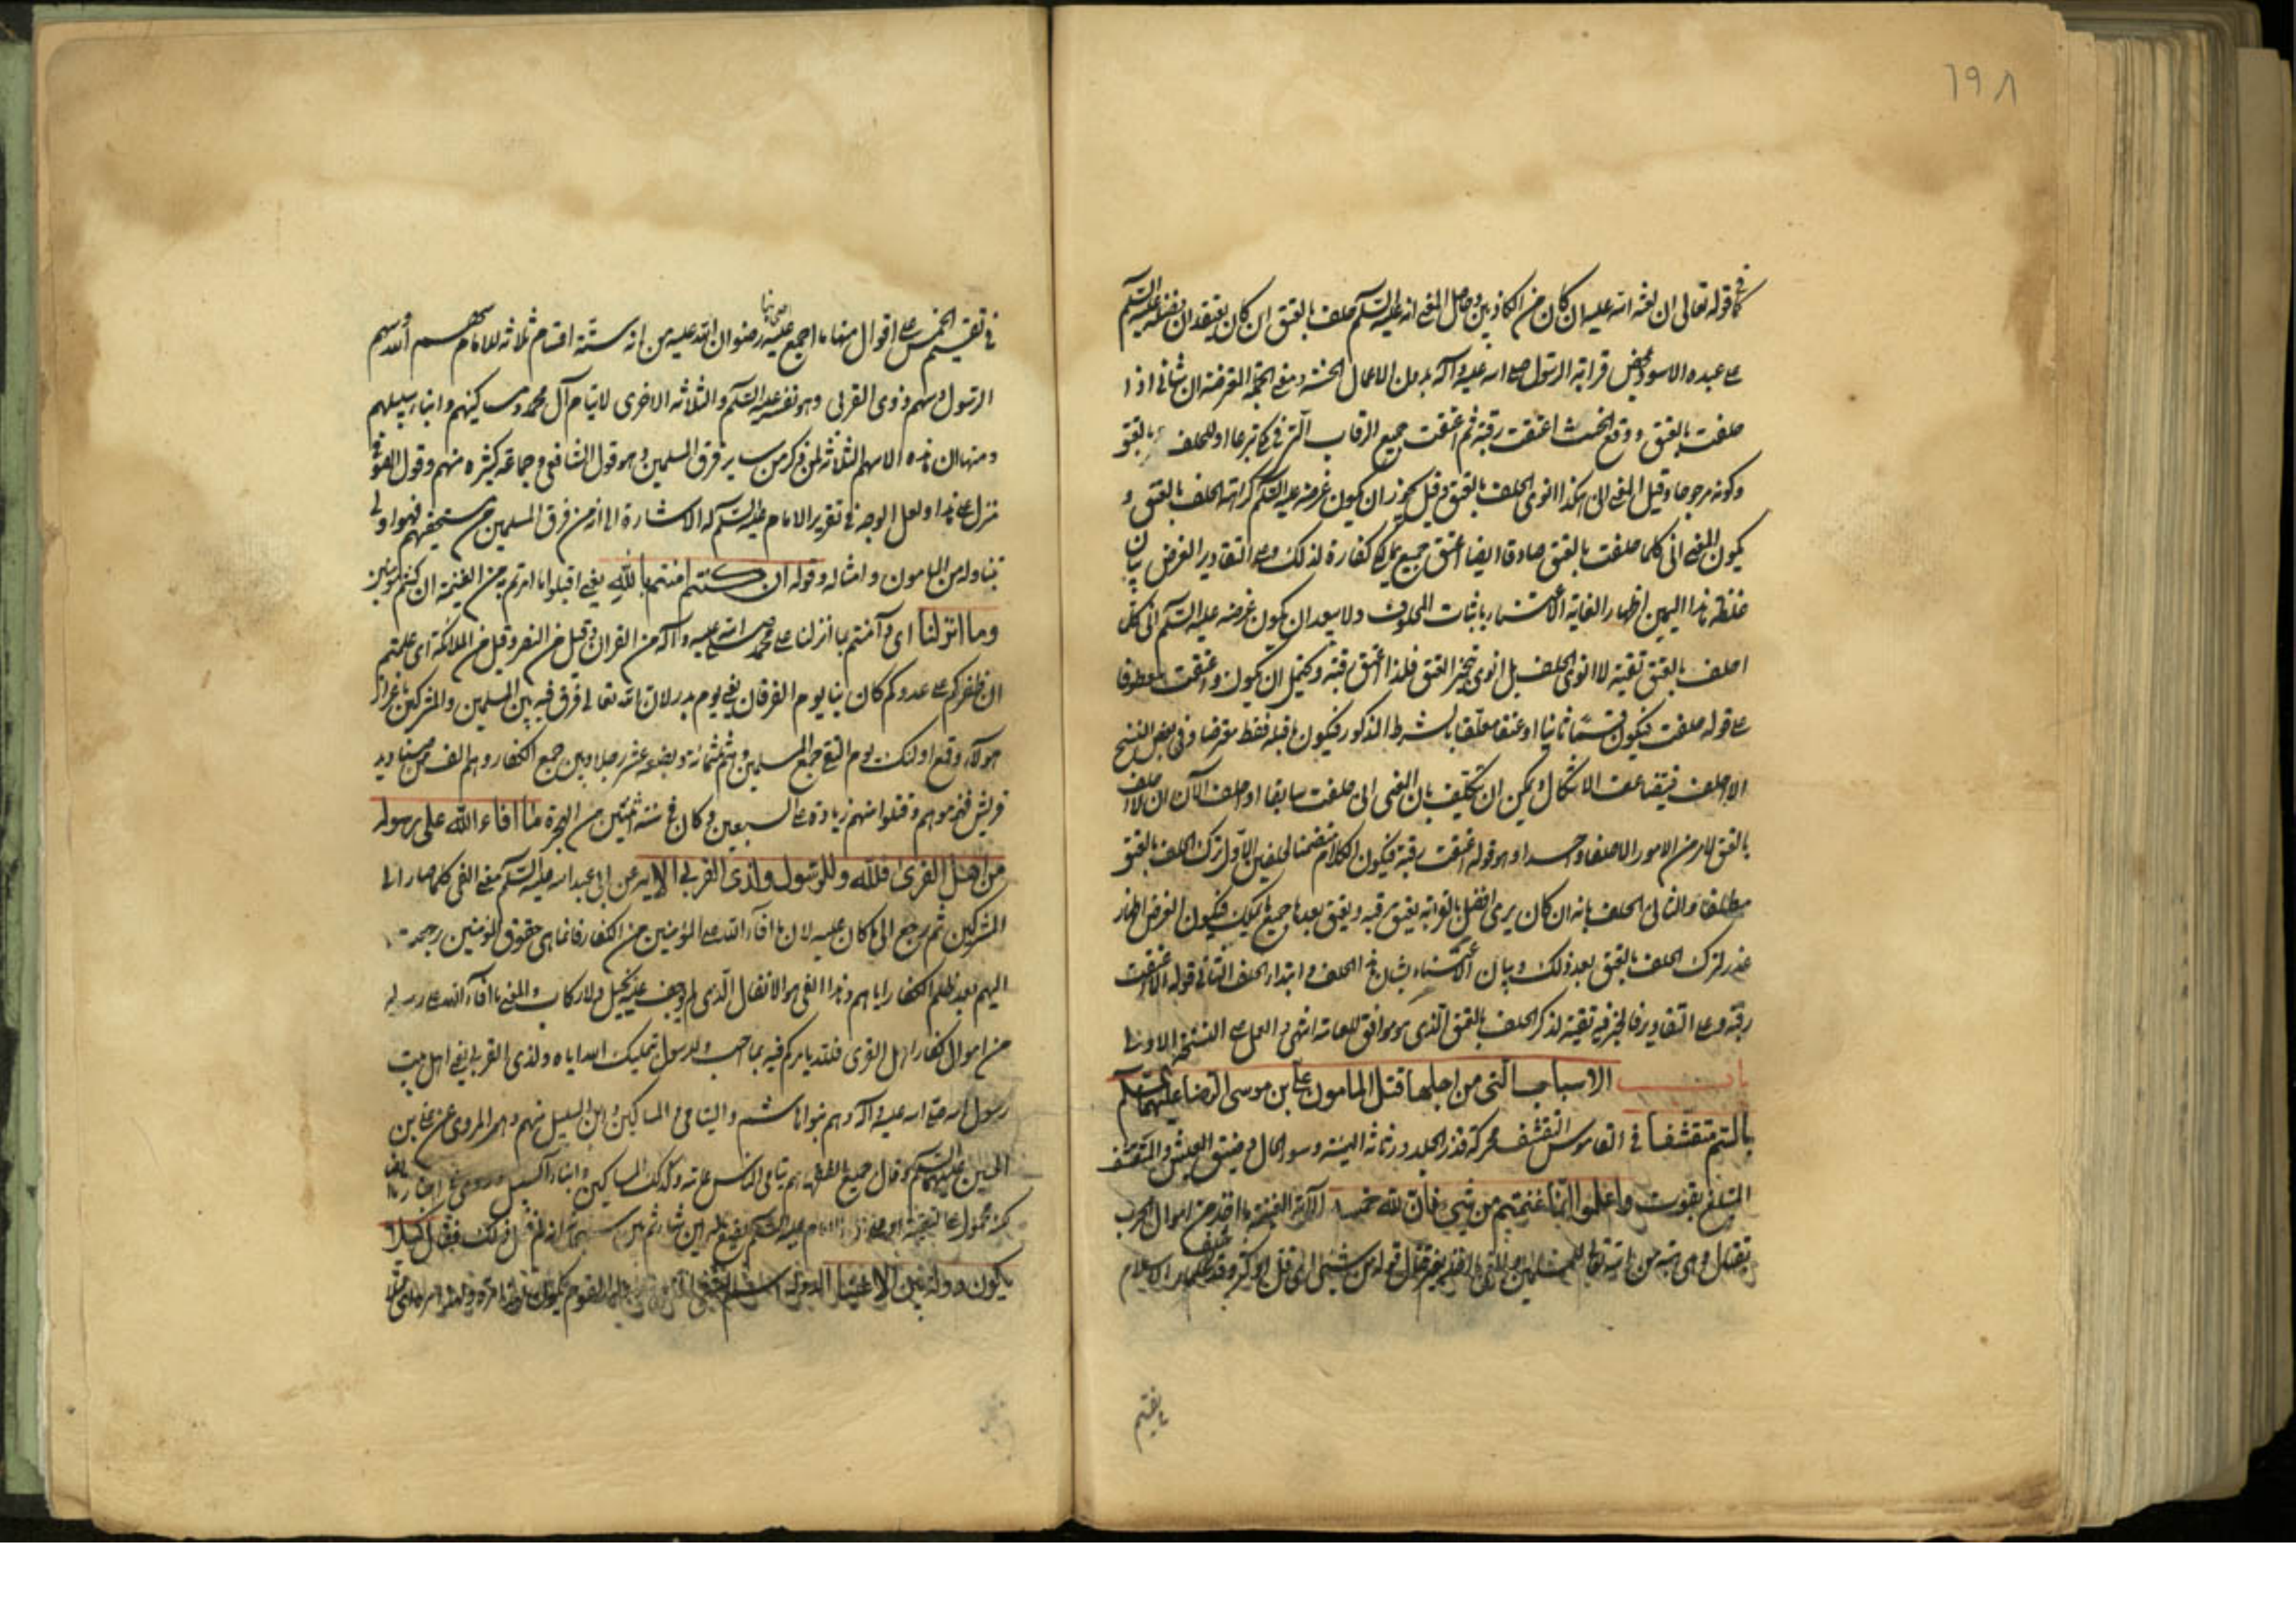 ١٩٨
كما في قوله تعالى ان لعنة الله عليه ان كان من الكاذبين وحاصل المعنى انه عليه السلم حلف بالعتق ان كان يعتقد ان
على عبده الاسود بمحض قرابة الرسول صلى الله عليه وآله بدون الاعمال الحسنة ومعنى الجملة المعترضة ان شأني اذا
حلفت بالعتق ووقع الحنث اعتقت رقبة ثم اعتقت جميع الرقاب التي في
وكونه مرجوحا وقيل المعنى اني هكذا انوي الحلف بالعتق وقيل يجوز ان يكون غرضه عليه السلم كراهة الحلف بالعتق و
يكون المعنى اني كلما حلفت بالعتق صادقا ايضا اعتق جميع ما املك كفارة لذلك وعلى التقادير الغرض بيان
غلظة هذا اليمين اظهارا لغاية الاعتناء باثبات المحلوف ولا يبعد ان يكون غرضه عليه السلم اني
احلف بالعتق تقية لا انوي الحلف بل انوي تنجيز العتق فلذا اعتق رقبة ويحتمل ان يكون واعتقت معطوفا
على قوله حلفت فيكون قسما ثانيا او عتقا معلقا بالشرط المذكور فيكون ما قبله فقط معترضا وفي بعض النسخ
الا احلف فيتضاعف الاشكال ويمكن ان يتكلف بان المعنى اني حلفت سابقا او احلف الآن ان لا احلف
بالعتق لامر من الامور الا حلفا واحدا وهو قوله اعتقت رقبة فيكون الكلام متضمنا لحلفين الاول ترك الحلف بالعتق
مطلقا والثاني الحلف بانه ان كان يرى افضل بالقرابة يعتق رقبة ويعتق بعدها جميع ما يملك فيكون الغرض اظهار
عذر لترك الحلف بالعتق بعد ذلك وبيان الاعتناء بشان هذا الحلف وابتداء الحلف الثاني قوله الا اعتقت
رقبة وعلى التقادير فالخبر فيه تقية لذكر الحلف بالعتق الذي هو موافق للعامة انتهى والعمل على النسخة الاولى
باب الاسباب التي من اجلها قتل المامون علي بن موسى الرضا عليهما السلم
بالسم متقشفا في القاموس القشف محركة قذر الجلد ورثاثة الهيئة وسوء الحال وضيق العيش والمتقشف
المتبلغ بقوت واعلموا انما غنمتم من شيء فان لله خمسه الآية الغنيمة ما اخذ من اموال الحرب
بقتال وهي هبة من الله تعالى للمسلمين والفيء ما اخذ بغير قتال قوله من شيء اي قل او كثر
يقسم
في تقسيم الخمس على اقوال منها ما اجمع عليه اصحابنا رضوان الله عليهم من انه ستة اقسام ثلاثة للامام سهم الله وسهم
الرسول وسهم ذوي القربى وهو نفسه عليه السلم والثلاثة الاخرى لايتام آل محمد ومساكينهم وابناء سبيلهم
ومنها ان هذه الاسهم الثلاثة لمن ذكر من سائر فرق المسلمين وهو قول الشافعي وجماعة كثيره منهم وقول الصوفي
منزل على هذا ولعل الوجه في تقرير الامام عليه السلم له الاشارة الى انه من فرق المسلمين من يستحقهم فهو اولى
بتناوله من المامون وامثاله وقوله ان كنتم امنتم بالله يعني اقبلوا ما امرتم به من الغنيمة ان كنتم مؤمنين
وما انزلنا اي وآمنتم بما انزلنا على محمد صلى الله عليه وآله من القران وقيل من النصر وقيل من الملائكة اي علمتم
ان ظفركم على عدوكم كان بنا يوم الفرقان يعني يوم بدر لان الله تعالى فرق فيه بين المسلمين والمشركين باعزاز
هؤلاء وقمع اولئك يوم التقى جمع المسلمين وهم ثلثمائة وبضعة عشر رجلا وبين جمع الكفار وهم الف من صناديد
قريش فهزموهم وقتلوا منهم زيادة على السبعين وكان في سنة اثنتين من الهجرة ما افاء الله على رسوله
من اهل القرى فلله وللرسول ولذي القربى الاية عن ابي عبد الله عليه السلم معنى الفيء كلما صار الى
المشركين ثم رجع الى ما كان عليه لان ما افاء الله على المؤمنين من الكفار فانما هي حقوق المؤمنين رجعت
اليهم بعد ظلم الكفار اياهم وهذا الفيء هو الانفال الذي لم يوجف عليه بخيل ولا ركاب والمعنى ما افاء الله على رسوله
من اموال كفار اهل القرى فلله يامركم فيه بما احب وللرسول بتمليك الله اياه ولذي القربى يعني اهل بيت
رسول الله صلى الله عليه وآله وهم بنو هاشم واليتامى والمساكين وابن السبيل منهم وهو المروي عن علي بن
الحسين عليهما السلم وقال جميع الفقهاء هم يتامى الناس عامة وكذلك المساكين وابناء السبيل
يكون دولة بين الاغنياء الدولة اسم للشيء